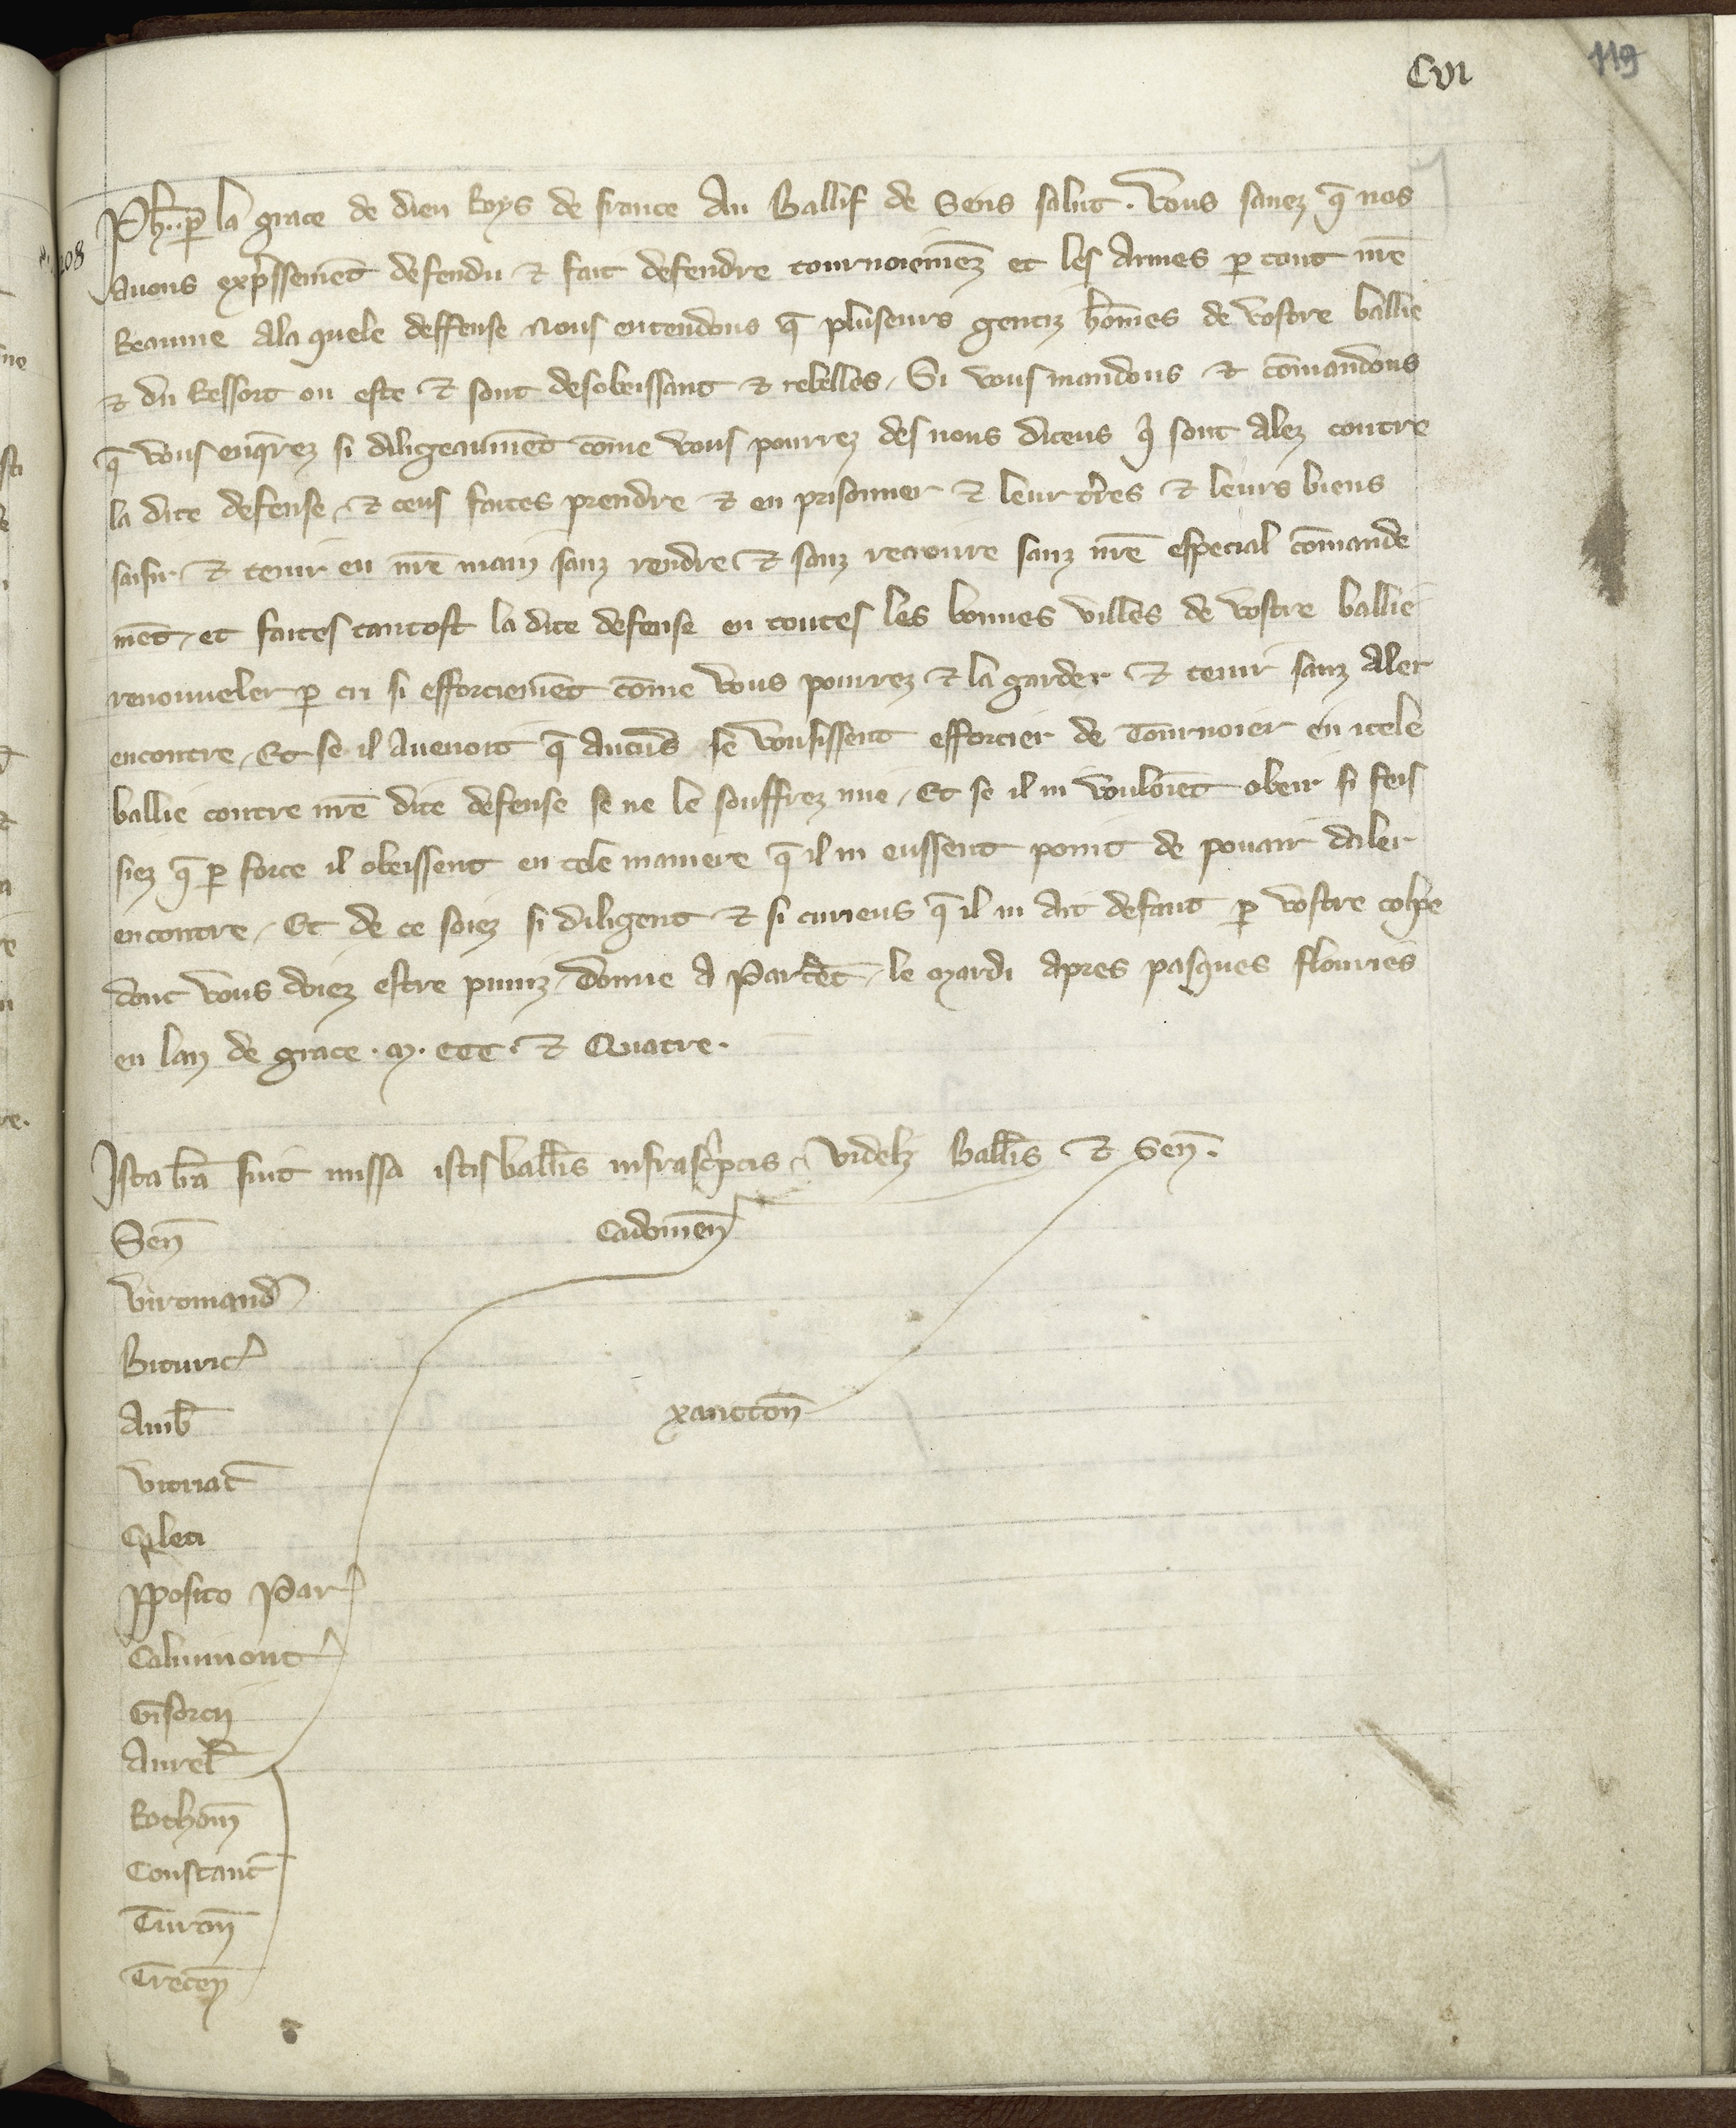 CVI
119
Ph'. . p̱ la grace de dieu Roys de france Au Ballif de Sens salut. Vous sauez q̄ nos
208
Auons exp̄ssemēt defendu ⁊ fait defendre tournoiemēz et les Armes p̱ tout nr̄e
Reaume Ala quele deffense Nous entendons q̄ pluseurs gentiz hōmes de vostre ballie
⁊ du Ressort on este ⁊ sont desobeissant ⁊ rebelles, Si vous mandons ⁊ cōmandons
q̄ vous enq̄rrez si diligeaumēt cōme vous pourrez des nons diceus q̄ sont Alez contre
la dite defense, ⁊ ceus faites prendre ⁊ en prisonner ⁊ leur tr̄res ⁊ leurs biens
saisir ⁊ tenir en nr̄e main sanz rendre ⁊ sanz recroire sanz nr̄e especial cōmande
mēt, et faites tantost la dite defense en toutes les bonnes villes de vostre ballie
renouueler p̱ cri si efforciemēt cōme vous pourrez ⁊ la garder ⁊ tenir sanz Aler
encontre, Et se il Auenoit q̄ Aucūs se vousissent efforcier de Tournoier en icele
ballie contre nr̄e dite defense se ne le souffrez mie, Et se il ni vouloiēt obeir si feis
siez q̄ p̱ force il obeissent en tele maniere q̄ il ni eussent point de pouair daler
encontre, Et de ce soiez si diligent ⁊ si curieus q̄ il ni Ait defaut p̱ vostre colpe
dont vous doiez estre puniz, Donne A Par le Mardi apres pasques flouries
en lan de grace . M. CCC. ⁊ Quatre.
Ista lr̄a fuit missa istis ballīs infrasc̄ptis, videlz Ballīs ⁊ Sen̄.
Sen̄ Cadomen̄
Viromand̄
Bituric̄
Amb̄ Xancton̄
Vitriac̄
Caleti
P̄posito Par̄
Caluimont̄
Gisorcii
Aurel̄
Rothom̄
Constant̄
Turon̄
Trecen̄